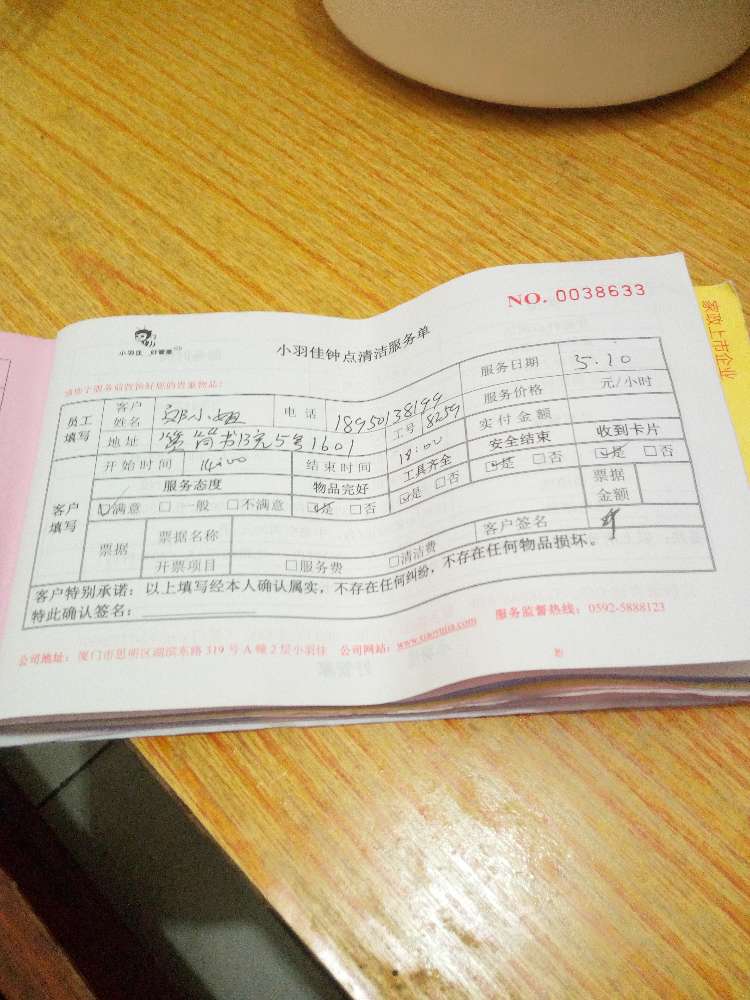 NO. 0038633
小羽佳 好管家
小羽佳钟点清洁服务单
请您于服务前置换好您的贵重物品：
员工填写 客户姓名 邹小姐 电话 18950138199 服务日期 5.10
工号 8259 服务价格 元/小时
地址 筼筜书院5号1601 实付金额
开始时间 14:00 结束时间 18:00 安全结束 收到卡片
客户填写 服务态度 物品完好 工具齐全 ☑是 □否 ☑是 □否
☑满意 □一般 □不满意 ☑是 □否 ☑是 □否 票据金额
票据 票据名称 客户签名
开票项目 □服务费 □清洁费
客户特别承诺：以上填写经本人确认属实，不存在任何纠纷，不存在任何物品损坏。
特此确认签名：
公司地址：厦门市思明区湖滨东路319号A幢2层小羽佳 公司网站： 服务监督热线：0592-5888123
家政上市企业